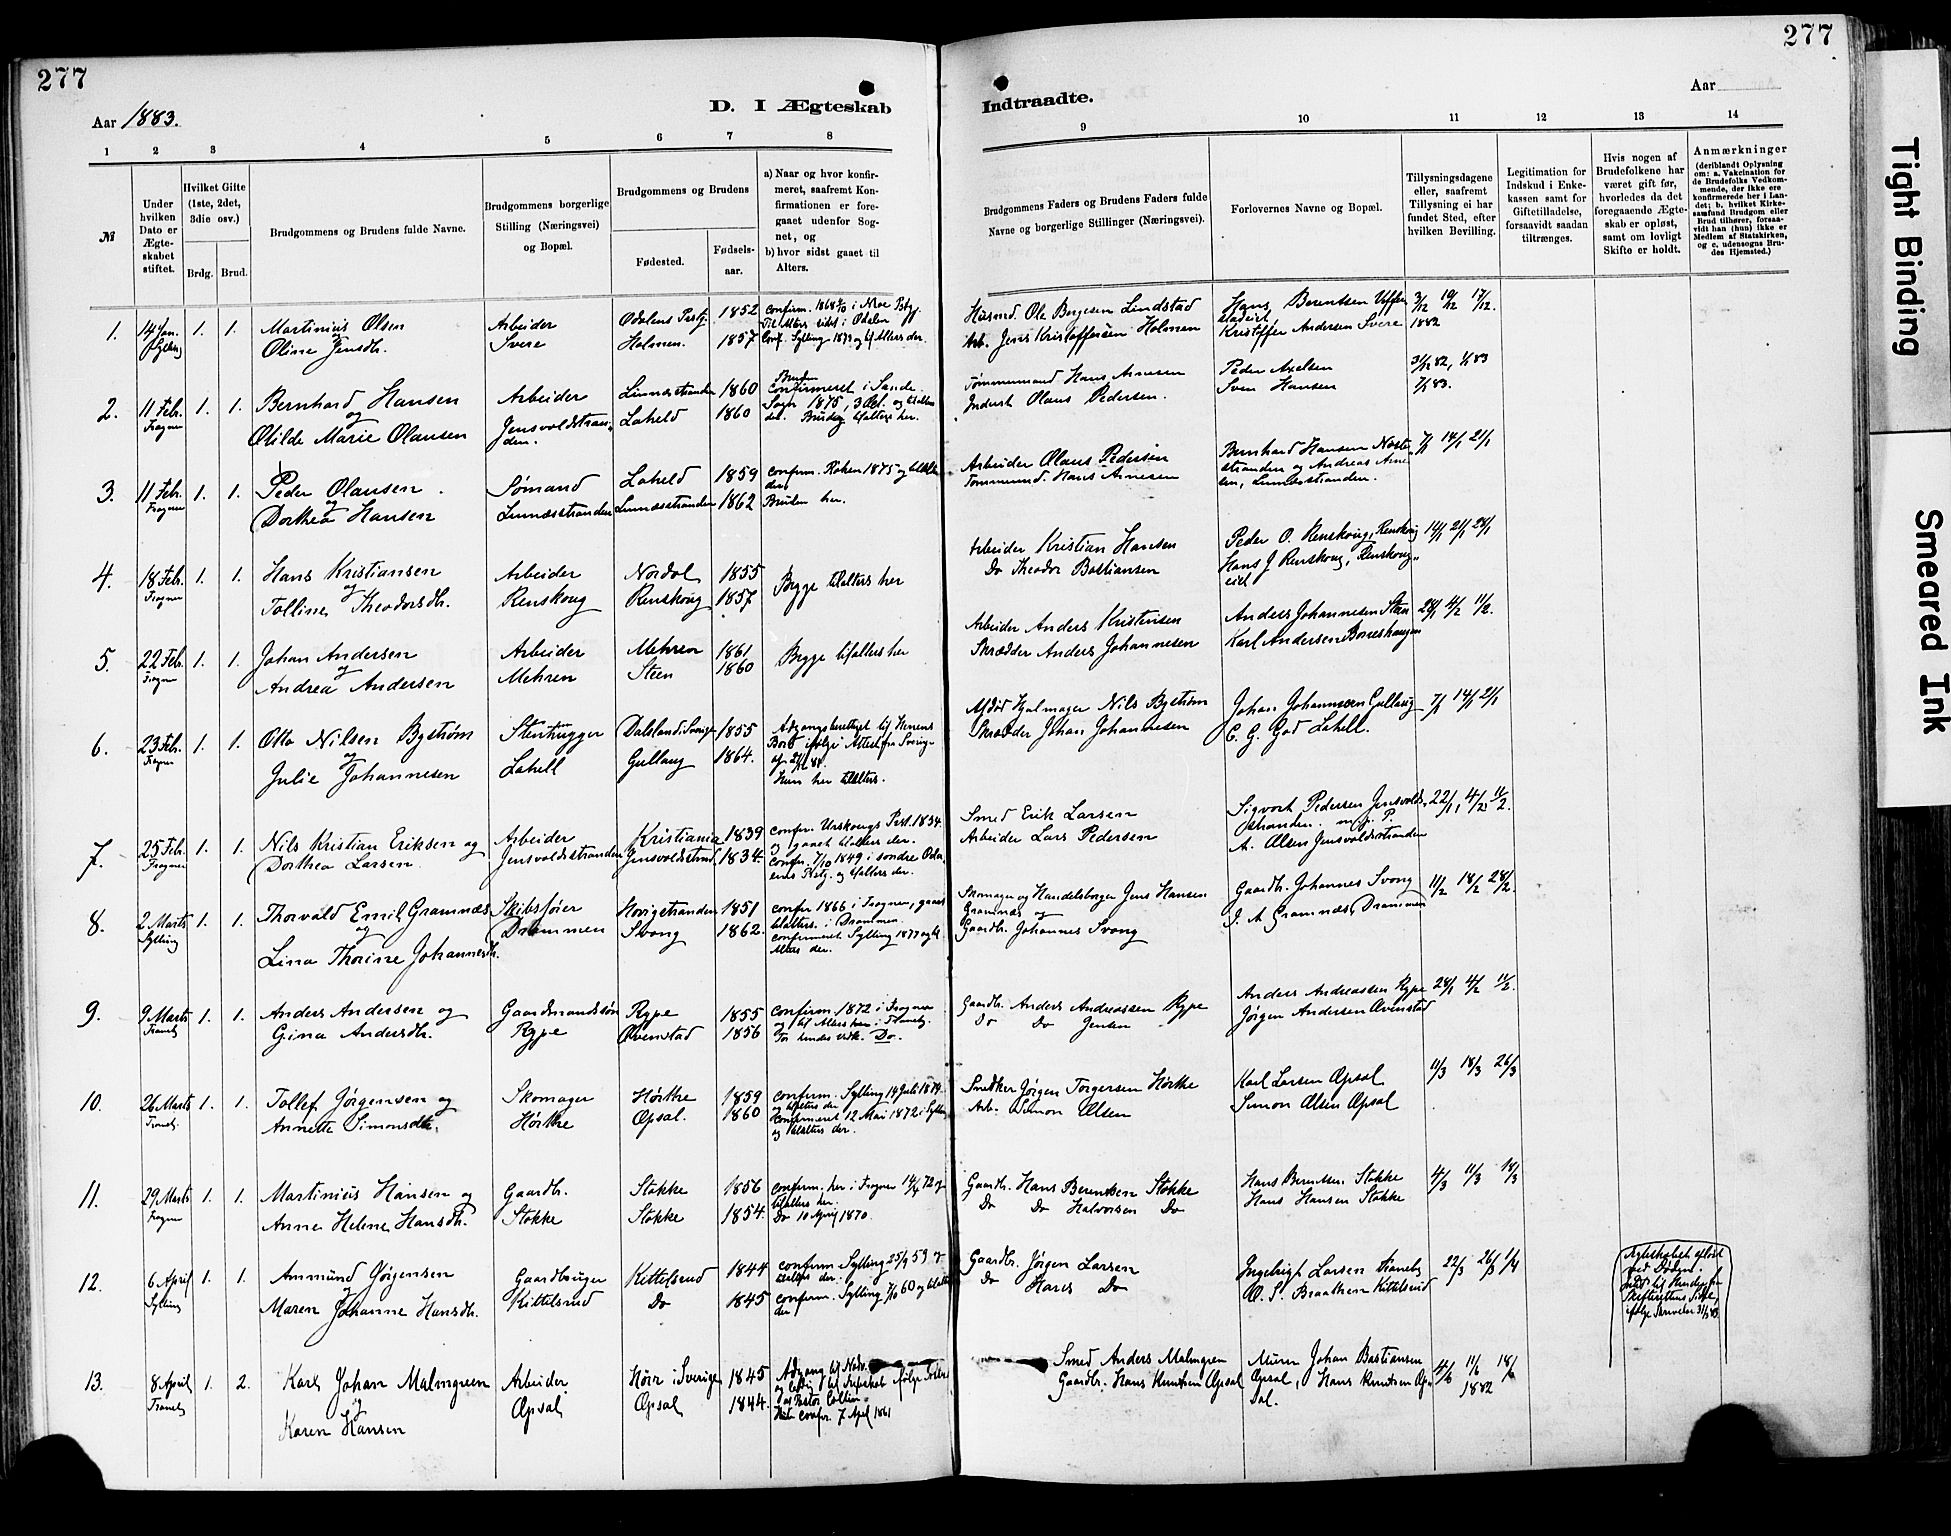 277
277
Aar 1883.
D. I Ægteskab
Indtraadte.
Aar
1 2 3 4 5 6 7 8 9 10 11 12 13 14
№
Under hvilken Dato er Ægteskabet stiftet.
Hvilket Gifte (1ste, 2det, 3die osv.)
Brdg. Brud.
Brudgommens og Brudens fulde Navne.
Brudgommens borgerlige Stilling (Næringsvei) og Bopæl.
Brudgommens og Brudens
Fødested.
Fødselsaar.
a) Naar og hvor konfirmeret, saafremt Konfirmationen er foregaaet udenfor Sognet, og
b) hvor sidst gaaet til Alters.
Brudgommens Faders og Brudens Faders fulde Navne og borgerlige Stillinger (Næringsvei).
Forlovernes Navne og Bopæl.
Tillysningsdagene eller, saafremt Tillysning ei har fundet Sted, efter hvilken Bevilling.
Legitimation for Indskud i Enkekassen samt for Giftetilladelse, forsaavidt saadan tiltrænges.
Hvis nogen af Brudefolkene har været gift før, hvorledes da det foregaaende Ægteskab er opløst, samt om lovligt Skifte er holdt.
Anmærkninger (deriblandt Oplysning om: a. Vakcination for de Brudefolks Vedkommende, der ikke ere konfirmerede her i Landet; b. hvilket Kirkesamfund Brudgom eller Brud tilhører, forsaavidt han (hun) ikke er Medlem af Statskirken, og c. udensogns Brudes Hjemsted.)
1. 14 Jan. Sylling 1. 1. Martinius Olsen og Oline Jensdtr. Arbeider Svere Odalens Prstgj. Holmen. 1852 1857 confirm. 1868 i Moe Prstgj. Til Alters sidst i Odalen Conf. Sylling 1873 og til Alters der. Husmd. Ole Birgesen Lindstad Arb. Jens Kristoffersen Holmen Hans Berentsen Kristoffer Andersen Svere 3/12 10/12 17/12 1882
2. 11 Feb. Frogner 1. 1. Bernhard Hansen og Otilde Marie Olausen Arbeider Jensvoldstranden. Linnæsstranden Laheld 1860 1860 Bruden confirmeret i Sande Sogn 1875, 3 Oct. og tilalters der. Brudg. tilalters her. Tømmermand Hans Arnesen Inderst Olaus Pedersen. Peder Axelsen Sven Hansen 31/12 82, 1/1 83 7/1 83.
3. 11 Feb. Frogner 1. 1. Peder Olausen og Dorthea Hansen Sømand Linnæsstranden Laheld Linnæsstranden 1859 1862 confirm. Røken 1875 og tilalters der. Bruden her. Arbeider Olaus Pedersen Tømmermd. Hans Arnesen Bernhard Hansen Næstestranden og Andreas Arnesen, Linnæsstranden. 7/1 14/1 21/1
4. 18 Feb. Frogner 1. 1. Hans Kristiansen og Tolline Theodorsdtr. Arbeider Renskoug Nordal Renskoug 1855 1857 Begge tilalters her Arbeider Kristian Hansen Do Theodor Bastiansen Peder O. Renskoug, Renskoug Hans J Renskoug, Renskougeiet 14/1 21/1 28/1
5. 22 Feb. Frogner 1. 1. Johan Andersen og Andrea Andersen Arbeider Mehren Mehren Steen 1861 1860 Begge tilalters her Arbeider Anders Kristensen Skrædder Anders Johannesen Anders Johannesen Steen Karl Andersen Borreshaugen 28/1 4/2 11/2
6. 23 Feb. Frogner 1. 1. Otto Nilsen Bystrøm og Julie Johannesen Stenhugger Lahell Dalsland i Sverige Gullaug 1855 1864. Adgangsberettiget til Herrens Bord ifølge Attest fra Sverige af 2/12 82. Hun her tilalters. Afdød Hjulmager Nils Bystrøm Skrædder Johan Johannesen Johan Johannesen Gullaug C. G. God Lahell. 7/1 14/1 21/1
7. 25 Feb. Frogner 1. 1. Nils Kristian Eriksen og Dorthea Larsen Arbeider Jensvoldstranden Kristiania Jensvoldstrand 1839 1834. confir. Urskougs Prst. 1834 og gaaet tilalters der. confir. 7/10 1849 i søndre Odalens Prstgj. og tilalters der. Smed Erik Larsen Arbeider Lars Pedersen Sigvart Pedersen Jensvoldstranden. A. Olsen Jensvoldstranden 22/1, 4/2 11/2.
8. 2 Marts Sylling 1. 1. Thorvald Emil Gramnæs og Lina Thorine Johannesdtr. Skibsfører Drammen Hovigstranden Svong 1851 1862. confir 1866 i Frogner, gaaet tilalters i Drammen. confirmeret Sylling 1877 og til Alters der. Skomager og Handelsborger Jens Hansen Gramnæs og Gaardbr. Johannes Svong Gaardbr. Johannes Svong J. A. Gramnæs, Drammen 11/2 18/2 28/2.
9. 9 Marts Tranby 1. 1. Anders Andersen og Gina Andersdtr. Gaardmandssøn Rype Rype Ovenstad 1855 1856 confirm. 1872 i Frogner og til Alters her i Tranby. For hendes vedk. Do. Gaardbr. Anders Andreassen Rype Do Do Jensen Anders Andreassen Rype Jørgen Andersen Ovenstad 28/1 4/2 11/2.
10. 26 Marts Tranby. 1. 1. Tollef Jørgensen og Annette Simonsdtr. Skomager Hørthe Hørthe Opsal. 1859 1860 confirm. Sylling 14 Juli 1879. og tilalters der confirmeret 12 Mai 1872 i Sylling og tilalters der. Snedker Jørgen Torgersen Hørthe Arb. Simon Olsen Karl Larsen Opsal Simon Olsen Opsal 11/3 18/3 26/3
11. 29 Marts Frogner 1. 1. Martinius Hansen og Anne Helene Hansdtr. Gaardbr. Stokke Stokke Stokke 1856 1854. confirm. her i Frogner 14/4 72 og tilalters her. Do 10 April 1870. Gaardbr. Hans Berentsen Stokke Do Do Halvorsen Do Hans Berntsen Stokke Hans Hansen Stokke 4/3 11/3 18/3
12. 6 April Sylling 1. 1. Ammund Jørgensen og Maren Johanne Hansdtr. Gaardbruger Kittelsrud Kittelsrud Do 1844 1845 confirm. Sylling 25/9 59 og tilalters der. confirm. Sylling 7/10 60 og tilalters der Gaardbr. Jørgen Larsen Do Hans Do Ingebrigt Larsen Tranby O. S. Braathen Kittelsrud 22/3 26/3 1/4
Ægteskabet opløst ved Døden. Skifterettens Skrivelse 31/3 83.
13. 8 April Tranby 1. 2. Karl Johan Malmgreen og Karen Hansen Arbeider Opsal Hörr i Sverige Opsal 1845 1844. Adgang til Nadv. og ledig til Ægteskab ifølge Attest Hun confir. 7 April 1861 Smed Anders Malmgren Gaardbr. Hans Knutsen Opsal Murer Johan Bastiansen Opsal, Hans Knutsen Opsal. 4/6 11/6 18/6 1882
Tight Binding
Smeared Ink